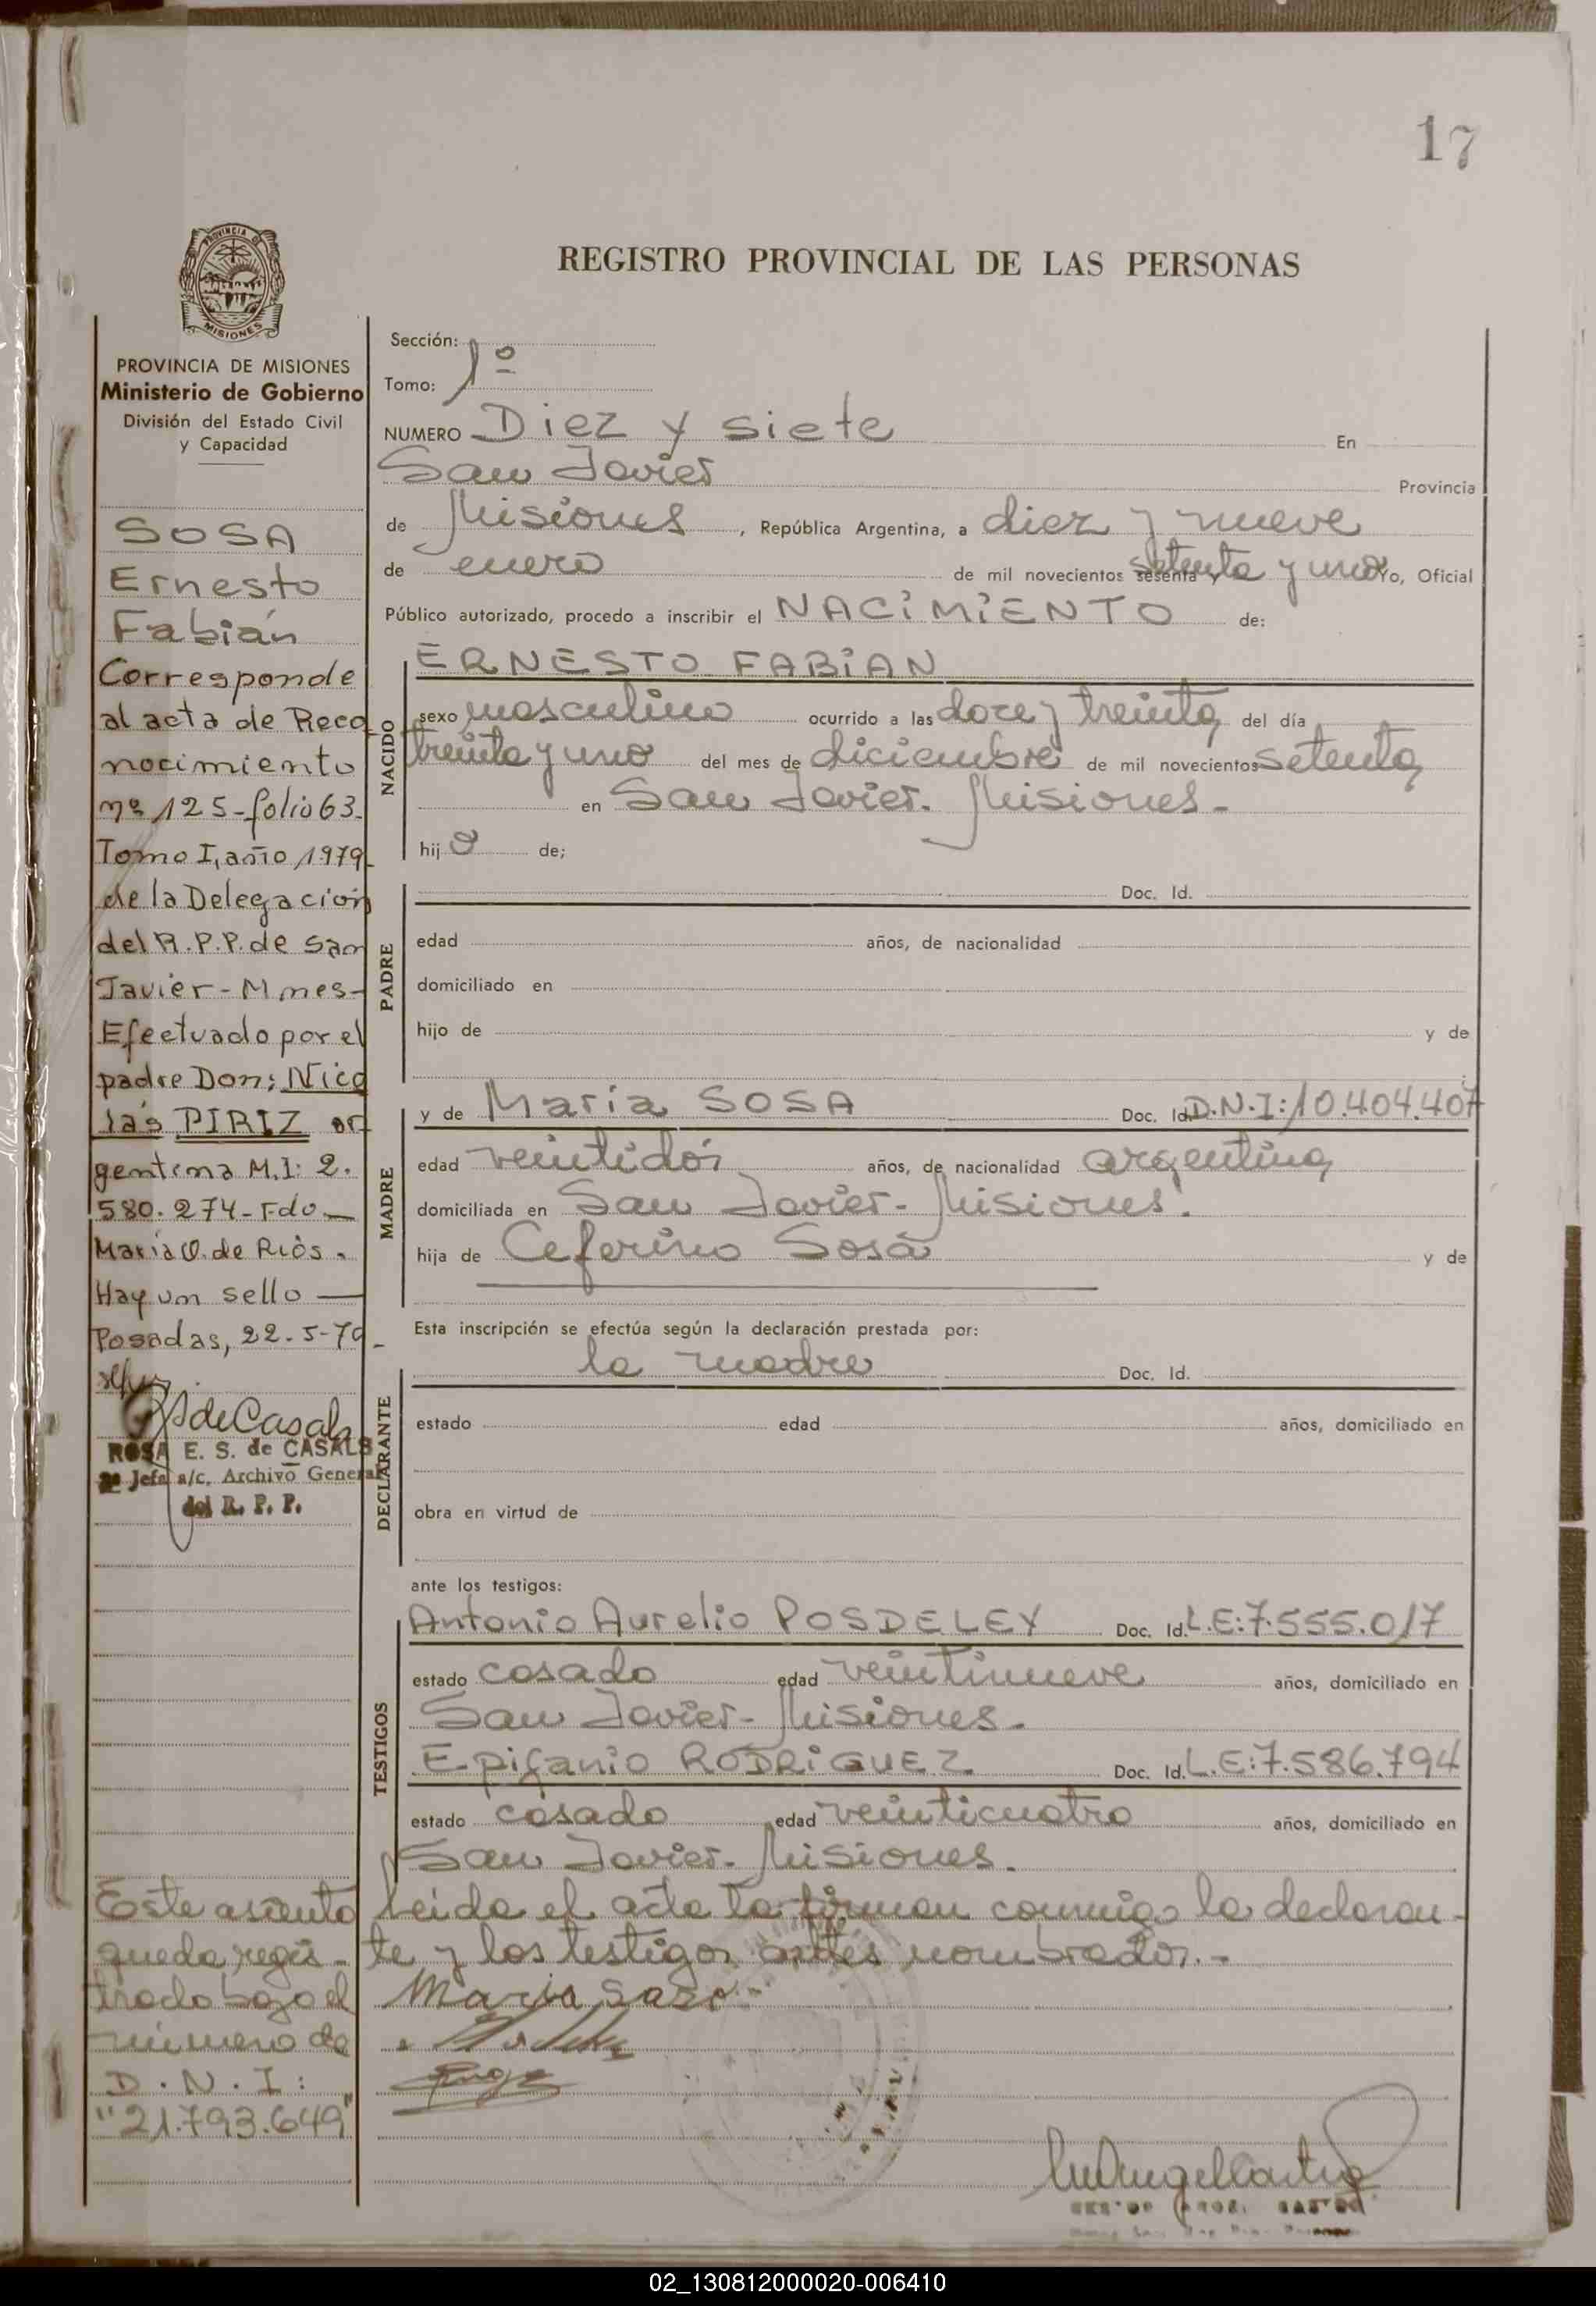 17
PROVINCIA DE
MISIONES
REGISTRO PROVINCIAL DE LAS PERSONAS
PROVINCIA DE MISIONES
Ministerio de Gobierno
División del Estado Civil
y Capacidad
SOSA
Ernesto
Fabián
Corresponde
al acta de Reco
nocimiento
nº 125-folio 63.
Tomo I, año 1979-
de la Delegación
del R.P.P. de San
Javier - Mnes-
Efectuado por el
padre Don: Nico
lás PIRIZ ar
gentino M.I: 2.
580.274-Fdo-
María O. de Ríos.
Hay un sello —
Posadas, 22-5-79-
RS de Casals
ROSA E. S. de CASALS
2ª Jefa a/c. Archivo General
del R. P. P.
Este asiento
queda regis-
trado bajo el
número de
D.N.I:
"21.793.649"
Sección:
Tomo: 1º
NUMERO Diez y siete En
San Javier Provincia
de Misiones, República Argentina, a diez y nueve
de enero de mil novecientos sesenta y setenta y uno yo, Oficial
Público autorizado, procedo a inscribir el NACIMIENTO de:
NACIDO
ERNESTO FABIAN
sexo masculino ocurrido a las doce y treinta del día
treinta y uno del mes de diciembre de mil novecientos setenta
en San Javier. Misiones.-
hijo de;
PADRE
Doc. Id.
edad años, de nacionalidad
domiciliado en
hijo de y de
MADRE
y de María SOSA Doc. Id. D.N.I: 10.404.407
edad veintidós años, de nacionalidad argentina
domiciliada en San Javier- Misiones.
hija de Ceferino Sosa y de
Esta inscripción se efectúa según la declaración prestada por:
DECLARANTE
la madre Doc. Id.
estado edad años, domiciliado en
obra en virtud de
ante los testigos:
TESTIGOS
Antonio Aurelio POSDELEY Doc. Id. L.E:7.555.017
estado casado edad veintinueve años, domiciliado en
San Javier- Misiones.
Epifanio RODRIGUEZ Doc. Id. L.E:7.586.794
estado casado edad veinticuatro años, domiciliado en
San Javier- Misiones.
Leída el acta la firman conmigo la declaran-
te y los testigos antes nombrados.-
Maria Sosa
02_130812000020-006410